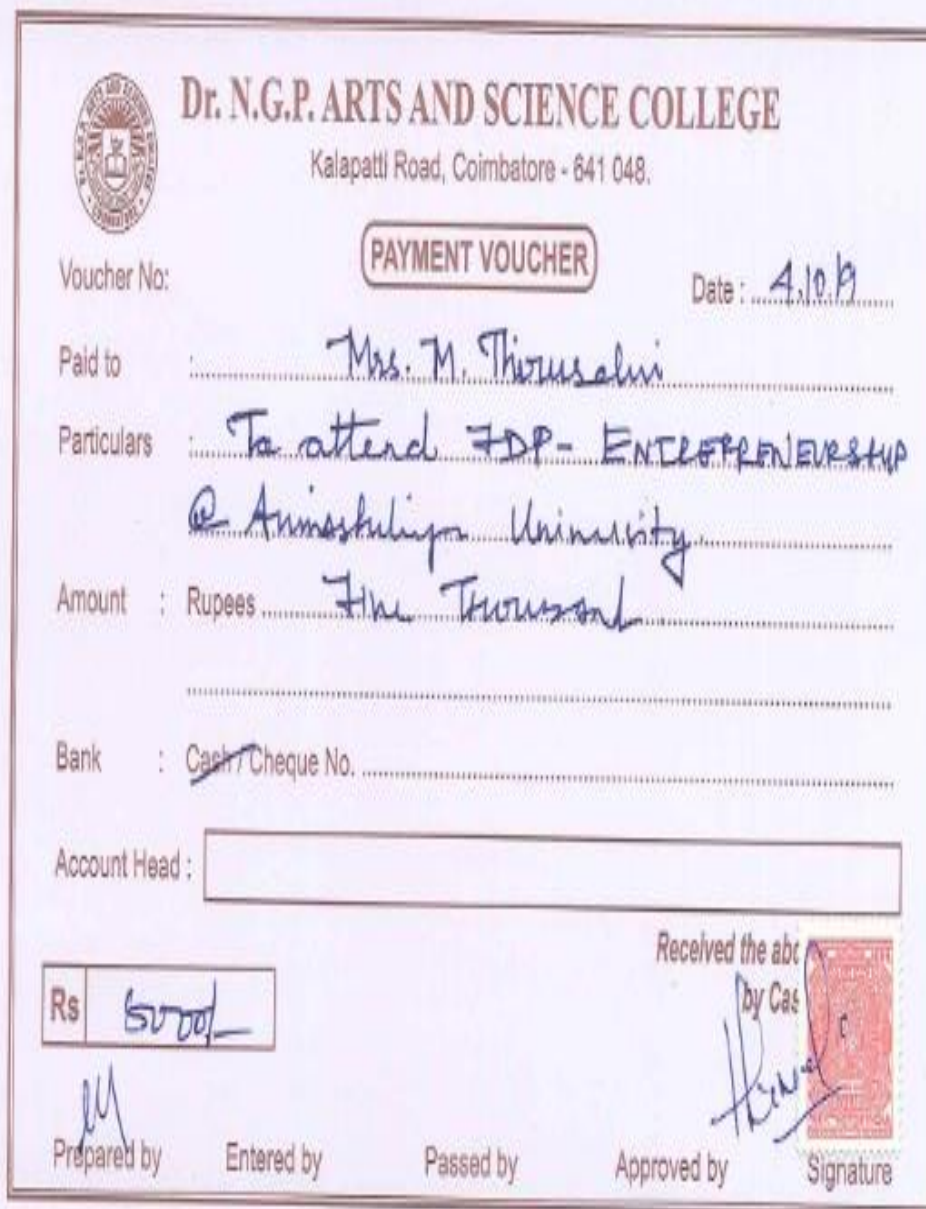 Dr. N.G.P. ARTS AND SCIENCE COLLEGE
Kalapatti Road, Coimbatore - 641 048.
PAYMENT VOUCHER
Voucher No:
Date : 4.10.19
Paid to : Mrs. M. Thirusalvi
Particulars : To attend FDP - ENTREPRENEURSHIP
@ University
Amount : Rupees Five Thousand
Bank : Cash / Cheque No.
Account Head :
Received the abo
by Cas
Rs 5000/-
Prepared by Entered by Passed by Approved by Signature